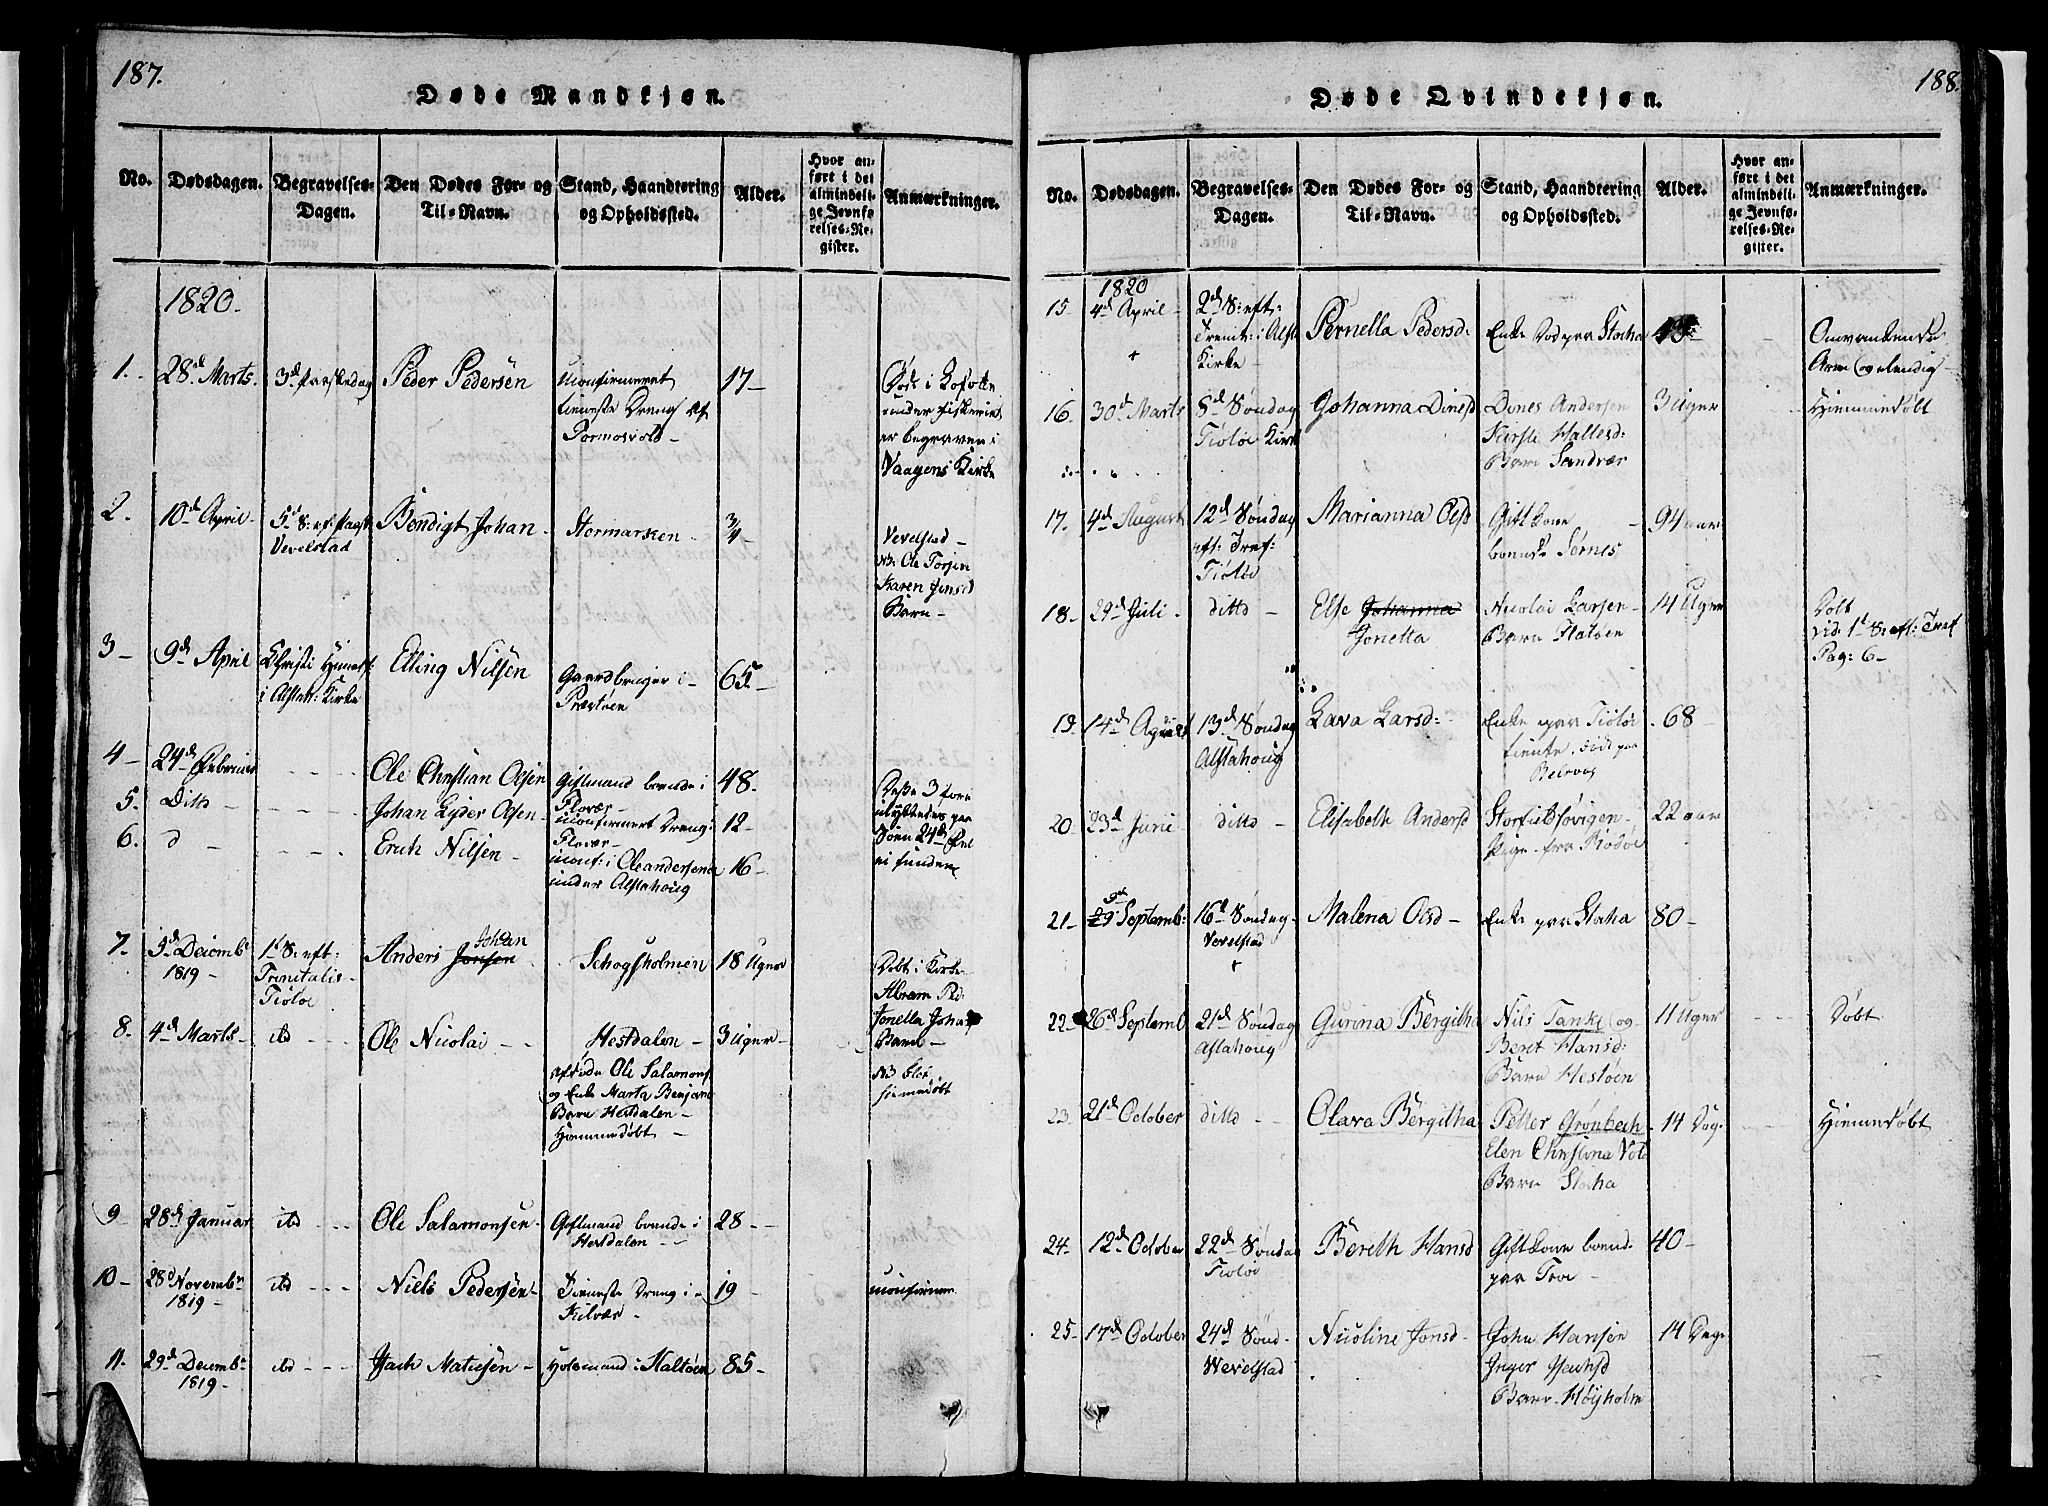 187.
Døde Mandkjøn.
No.
Dødsdagen.
Begravelses-
Dagen.
Den Dødes For- og
Til-Navn.
Stand, Haandtering
og Opholdssted.
Alder.
Hvor an-
ført i det
almindeli-
ge Jevnfø
relses-Re-
gister.
Anmærkninger.
1820.
1. 28d Marts. 3d Paaskedag Peder Pedersen
17-
Døde i Lofoten
under fiskeriet
er begraven i
Vaagens Kirke
2. 10d April-
5d S: ef: Paask
Vevelstad
Bendigt Johan-
Stormarken-
3/4-
Vevelstad-
Ole Torsen
Karen Jensd
Barn-
3- 9d April
Christi Himelf:
i Alstah: Kirke
Elling Nilsen
Gaardbruger i-
Præstøen
65-
4- 24d Februar
Ole Christian Olsen
Giftmand boende i
Flovær-
48.
5. Ditto-
Johan Lyder Olsen-
Flovær-
12-
6. d-
Erich Nilsen-
under Alstahoug
16-
Disse 3 fore
paa
Søen 24d Feb
ei funden
7. 5d Decemb
1819
1d S: eft:
Trinitatis-
Tiøtøe
Anders Jonsen
Johan
Schogsholmen
18 Uger
Døbt i Kirke
Abram Ped:
Jonella Joha
Barn-
8. 4d Marts-
Ole Nicolai--
Hestdalen-
Ole Salamons
og Enke Marta Benjam
Barn Hestdalen-
Hjemmedøbt-
3 Uger-
hiemedøbt
9- 28d Januar
Ole Salamonsen-
Giftmand boende i
Hestdalen--
28--
10- 28d Novemb
1819-
Niels Pedersen-
Tieneste Dreng i-
19-
11. 29d Decemb
1819-
Matiesen-
85-
188.
Døde Qvindekjøn.
No.
Dødsdagen.
Begravelses-
Dagen.
Den Dødes For- og
Til-Navn.
Stand, Haandtering
og Opholdssted.
Alder.
Hvor an-
ført i det
almindeli-
ge Jevnfø-
relses-Re-
gister.
Anmærkninger.
1820
15- 4d April-
2d S: eft:
i Alst
Kirke-
Pernella Pedersd:
Enke
paa Stocha
Arm og elendig
16- 30d Marts
8d Søndag
Tiøtøe Kirk
Johanna Dinesd
Dines Andersen
Kirsti Hallesd:
Barn Sandvær
3 Uger
Hiemmedøbt
17. 4d August
12d Søndag
eft: Tref:
Tiøtøe
Marianna Olsd
Gift Kone-
boende Sørnes
94 aar
18- 29d Juli-
ditto-
Else Johanna
Jonetta
Nicolai Larsen-
Barn Flatøen
14 Uger
Døbt
vid: 1d S: eft: Tref
Pag: 6-
19. 14d August
13d Søndag
Alstahoug
Lava Larsd:-
Enke paa Tiøtøe
68-
20- 23d Juni-
ditto-
Elisabeth Andersd
Pige fra Rødøe
22 aar
21- 29 Septemb:
16d Søndag-
Vevelstad
Malena Olsd-
Enke paa Stocha
80-
22- 26d Septemb
21d Søndag
Gurina Bergitha
Nils Tanke og-
Beret Hansd:
Barn Hestøen
11 Uger
Døbt
23. 21d October
ditto-
Olava Bergitha
Petter Grønbech-
Elen Christina
Barn Stocha
14 Dag
Hiemmedøbt
24. 12d October
22d Søndag
Tiøtøe
Bereth Hansd
Gift Kone boend-
paa Troe-
40-
25- 17d October
24d Sønd-
Wevelstad
Nicoline Jonsd-
John Hansen
Inger Isachsd
Barn Høyholm
14 Dag